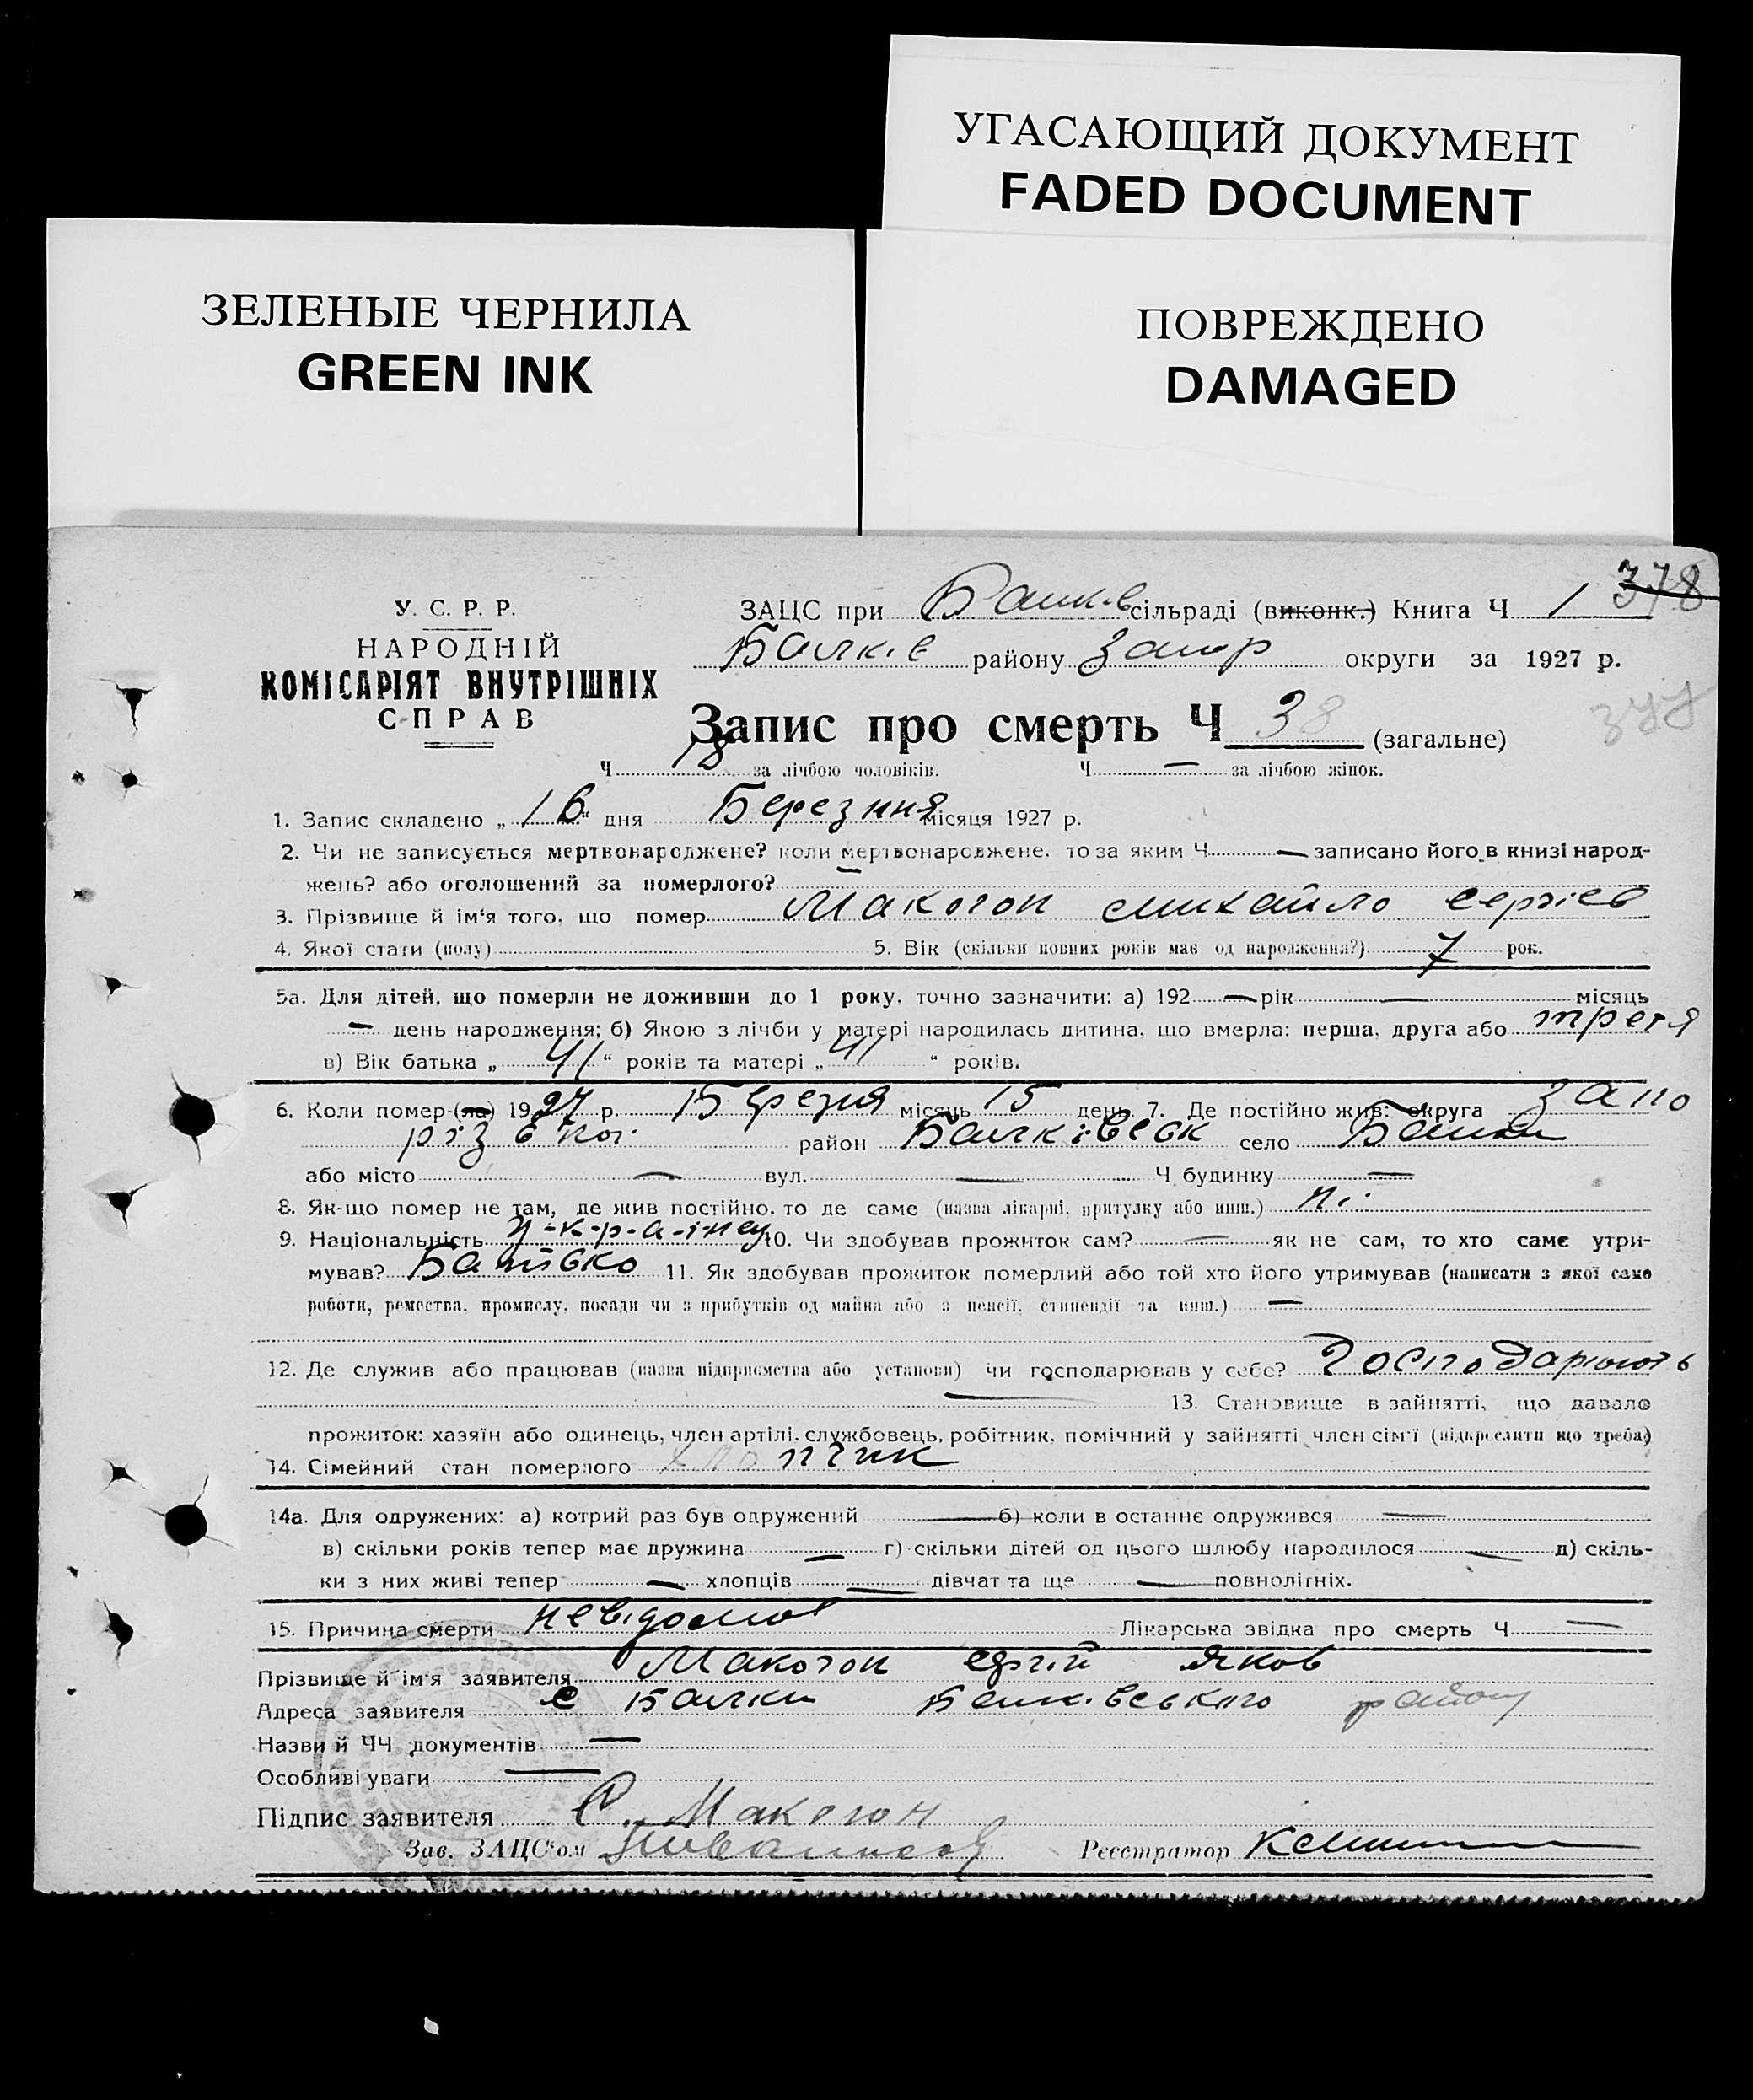 УГАСАЮЩИЙ ДОКУМЕНТ
FADED DOCUMENT
ЗЕЛЕНЫЕ ЧЕРНИЛА
GREEN INK
ПОВРЕЖДЕНО
DAMAGED
378
У. С. Р. Р.
НАРОДНІЙ
КОМІСАРІЯТ ВНУТРІШНІХ
СПРАВ
ЗАЦС при Балків сільраді (виконк.) Книга Ч 1
Балків району Запор округи за 1927 р.
377
Запис про смерть Ч 38 (загальне)
Ч 18 за лічбою чоловіків. Ч — за лічбою жінок.
1. Запис складено „16“ дня Березння місяця 1927 р.
2. Чи не записується мертвонароджене? коли мертвонароджене, то за яким Ч — записано його в книзі народ-
жень? або оголошений за померлого? —
3. Прізвище й ім‘я того, що помер Макогон Михайло Сергієв
4. Якої стати (полу) 5. Вік (скільки повних років має од народження?) 7 рок.
5а. Для дітей, що померли не доживши до 1 року, точно зазначити: а) 192 — рік — місяць
— день народження; б) Якою з лічби у матері народилась дитина, що вмерла: перша, друга або третя
в) Вік батька „41“ років та матері „41“ років.
6. Коли помер-(ла) 1927 р. Березня місяць 15 день. 7. Де постійно жив: округа Запо
різської район Балківськ село Балки
або місто — вул. — Ч будинку —
8. Як-що помер не там, де жив постійно, то де саме (назва лікарні, притулку або инш.) ні.
9. Національність У-к-р-а-їнец 10. Чи здобував прожиток сам? — як не сам, то хто саме утри-
мував? Батівко 11. Як здобував прожиток померлий або той хто його утримував (написати з якої само
роботи, ремества, промислу, посади чи з прибутків од майна або з пенсії, стипендії та инш.) —
12. Де служив або працював (назва підприємства або установи) чи господарював у себе? Господарюють
— 13. Становище в зайнятті, що давало
прожиток: хазяїн або одинець, член артілі, службовець, робітник, помічний у зайнятті член сім‘ї (підкреслити що треба)
14. Сімейний стан померлого хлопчик
14а. Для одружених: а) котрий раз був одружений — б) коли в останнє одружився —
в) скільки років тепер має дружина — г) скільки дітей од цього шлюбу народилося — д) скіль-
ки з них живі тепер — хлопців — дівчат та ще — повнолітніх.
15. Причина смерти невідома Лікарська звідка про смерть Ч —
Прізвище й ім‘я заявителя Макогон Сергій Яков
Адреса заявителя с Балки Балківського району
Назви й ЧЧ документів —
Особливі уваги —
Підпис заявителя С. Макогон
Зав. ЗАЦС‘ом Реєстратор